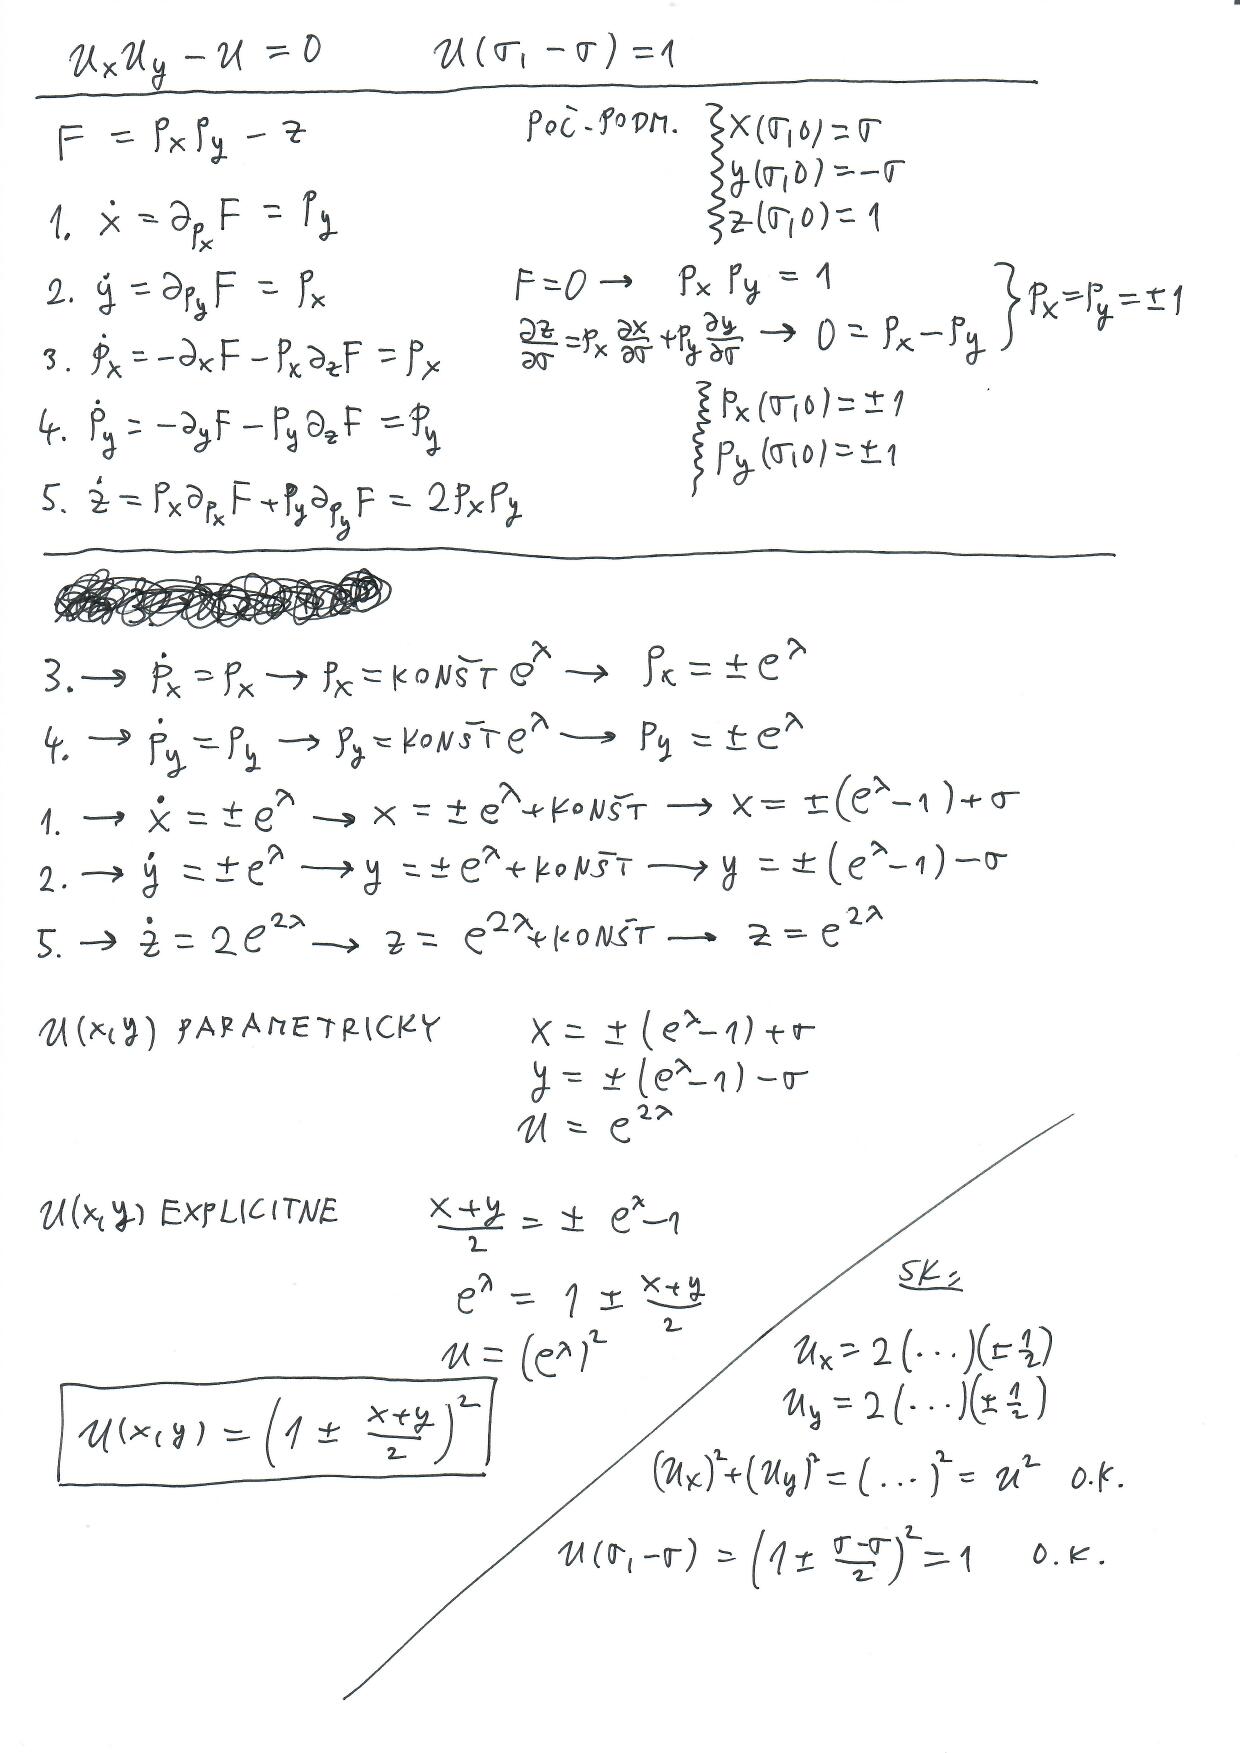 u_x u_y − u = 0 u(σ, −σ) = 1
F = p_x p_y − z
POČ. PODM. { x(σ,0) = σ
y(σ,0) = −σ
z(σ,0) = 1
1. ẋ = ∂_{p_x} F = p_y
2. ẏ = ∂_{p_y} F = p_x
3. ṗ_x = −∂_x F − p_x ∂_z F = p_x
4. ṗ_y = −∂_y F − p_y ∂_z F = p_y
5. ż = p_x ∂_{p_x} F + p_y ∂_{p_y} F = 2 p_x p_y
F = 0 → p_x p_y = 1
∂z/∂σ = p_x ∂x/∂σ + p_y ∂y/∂σ → 0 = p_x − p_y } p_x = p_y = ±1
{ p_x(σ,0) = ±1
p_y(σ,0) = ±1
3. → ṗ_x = p_x → p_x = KONŠT e^λ → p_x = ± e^λ
4. → ṗ_y = p_y → p_y = KONŠT e^λ → p_y = ± e^λ
1. → ẋ = ± e^λ → x = ± e^λ + KONŠT → x = ±(e^λ − 1) + σ
2. → ẏ = ± e^λ → y = ± e^λ + KONŠT → y = ±(e^λ − 1) − σ
5. → ż = 2e^{2λ} → z = e^{2λ} + KONŠT → z = e^{2λ}
u(x,y) PARAMETRICKY x = ±(e^λ − 1) + σ
y = ±(e^λ − 1) − σ
u = e^{2λ}
u(x,y) EXPLICITNE (x+y)/2 = ± e^λ − 1
e^λ = 1 ± (x+y)/2
u = (e^λ)^2
u(x,y) = (1 ± (x+y)/2)^2
SK:
u_x = 2(...)(± 1/2)
u_y = 2(...)(± 1/2)
(u_x)^2 + (u_y)^2 = (...)^2 = u^2 O.K.
u(σ, −σ) = (1 ± (σ−σ)/2)^2 = 1 O.K.